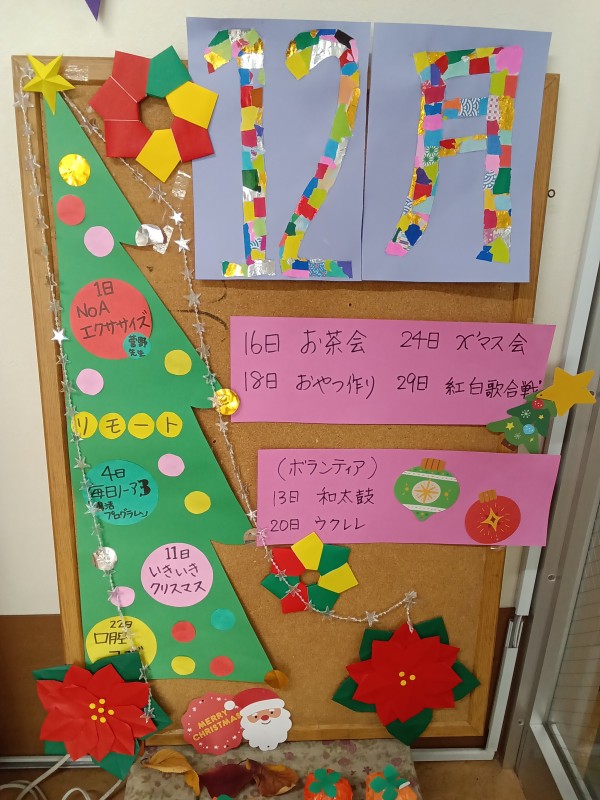 12月
1日
NOA
エクササイズ
菅野
先生
リモート
4日
毎日ノーア3
プログラム
11日
いきいき
クリスマス
22日
口腔
16日 お茶会 24日 X'マス会
18日 おやつ作り 29日 紅白歌合戦
(ボランティア)
13日 和太鼓
20日 ウクレレ
MERRY
CHRISTMAS